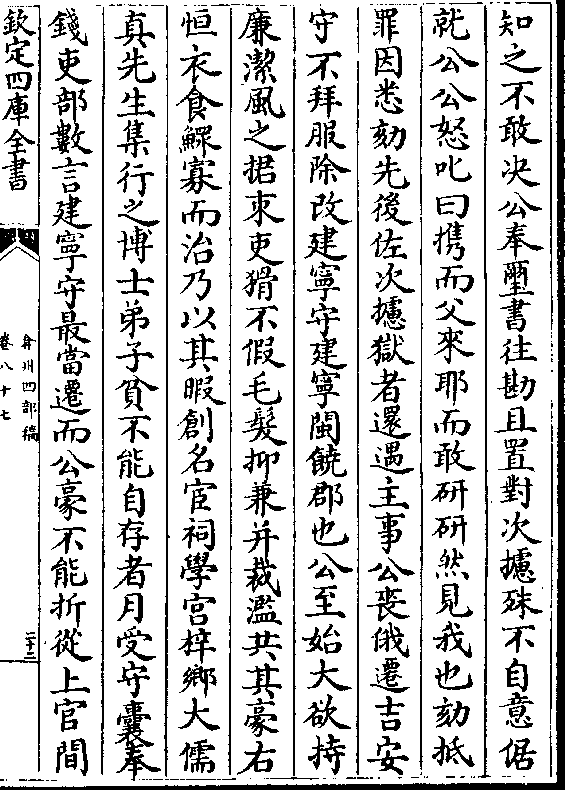 知之不敢决公奉璽書往勘且置對次攄殊不自意倨
就公公怒叱曰携而父來耶而敢研研然見我也劾抵
罪因悉劾先後佐次攄獄者還遇主事公喪俄遷吉安
守不拜服除改建寧守建寧閩饒郡也公至始大欲持
廉潔風之捃束吏猾不假毛髮抑兼并裁濫共其豪右
恒衣食鰥寡而治乃以其暇創名宦祠學宮梓鄉大儒
真先生集行之博士弟子貧不能自存者月受守囊奉
錢吏部數言建寧守最當遷而公豪不能折從上官間
欽定四庫全書
弇州四部稿
卷八十七
二十三